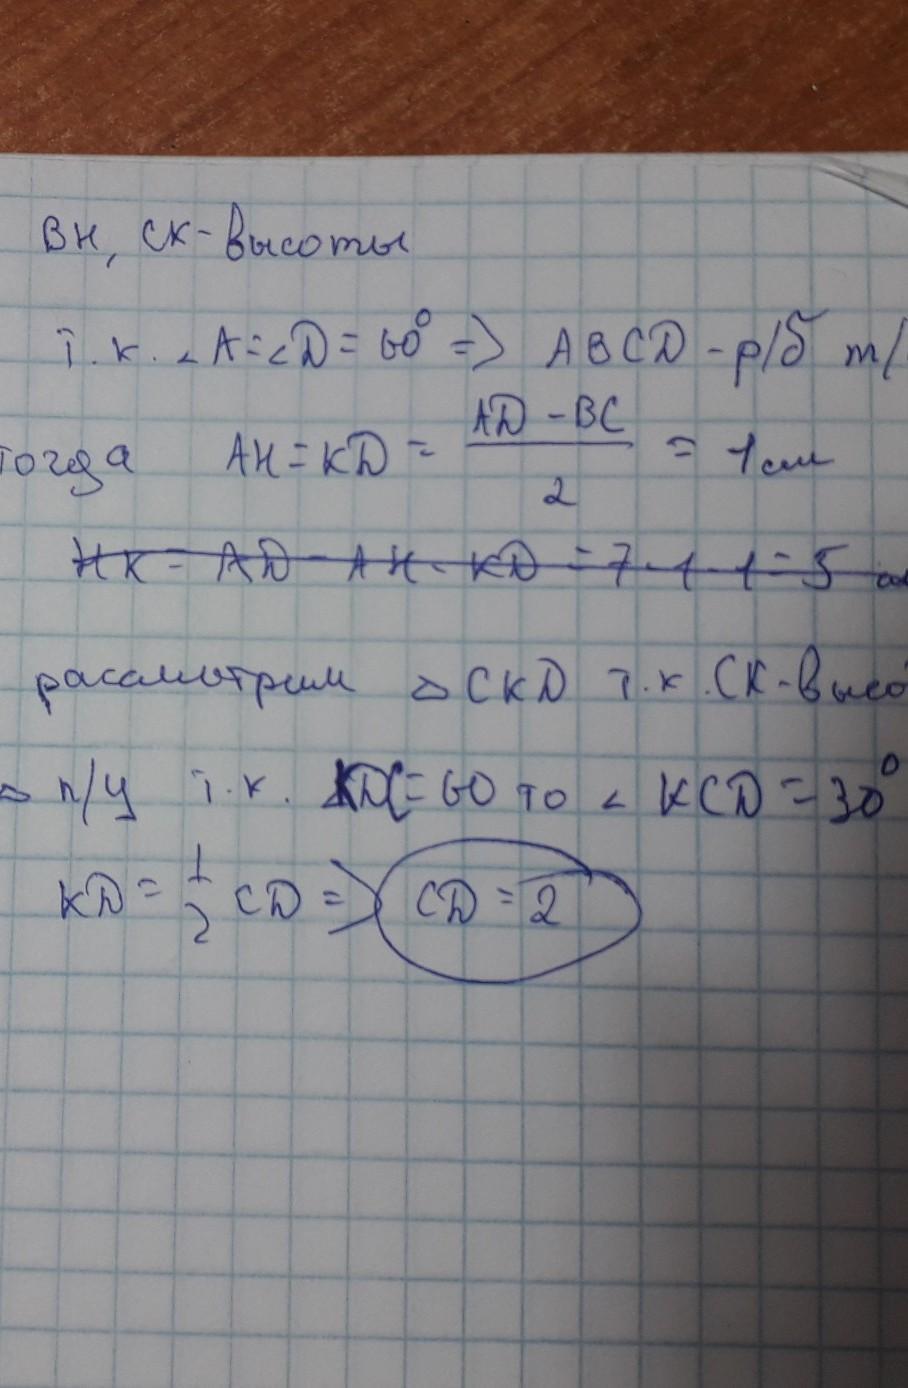 BH, CK - высоты
т.к. ∠A=∠D=60° => ABCD - р/б т/
тогда AH=KD= (AD - BC)/2 = 1 см
HK = AD - AH - KD = 7-1-1=5
рассмотрим △ CKD т.к. CK - высо
△ п/у т.к. KDC=60 то ∠ KCD=30°
KD = 1/2 CD => CD = 2